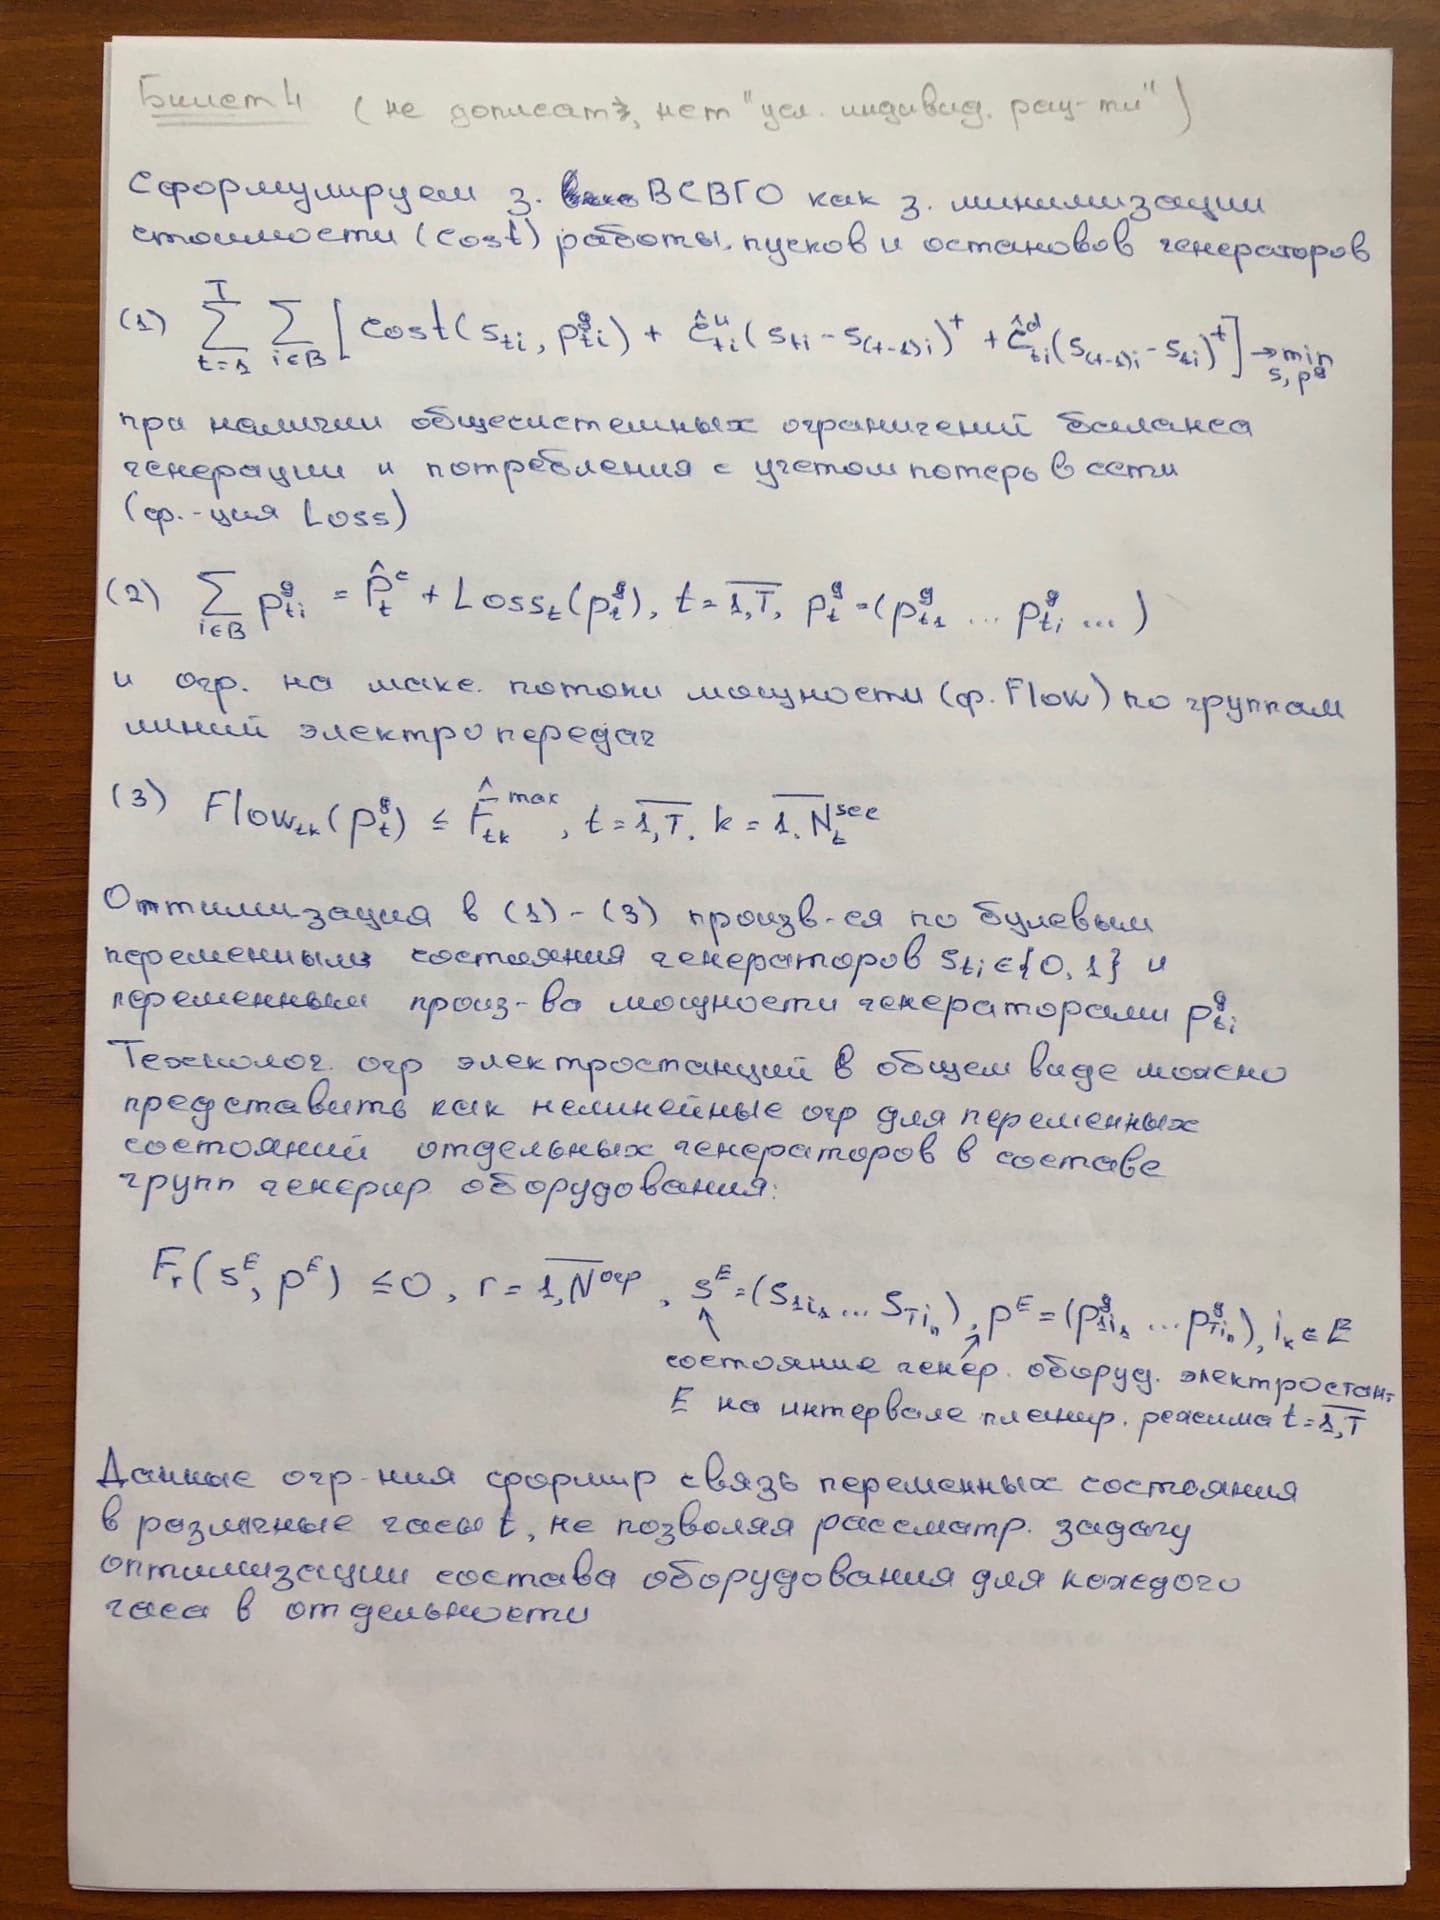 Билет 4 (не дописать, нет "усл. индивид. рац-ти")
Сформулируем з. ВСВГО как з. минимизации
стоимости (cost) работы, пусков и остановов генераторов
(1) \sum_{t=1}^{T} \sum_{i∈B} [cost(s_{ti}, p^g_{ti}) + ĉ^u_{ti}(s_{ti} - s_{(t-1)i})^+ + ĉ^d_{ti}(s_{(t-1)i} - s_{ti})^+] → min_{s, p^g}
при наличии общесистемных ограничений баланса
генерации и потребления с учетом потерь в сети
(ф.-ция Loss)
(2) \sum_{i∈B} p^g_{ti} = P̂^c_t + Loss_t(p^g_t), t = \overline{1,T}, p^g_t = (p^g_{t1} ... p^g_{ti} ...)
и огр. на макс. потоки мощности (ф. Flow) по группам
линий электропередач
(3) Flow_{tk}(p^g_t) ≤ F̂^{max}_{tk}, t = \overline{1,T}, k = \overline{1, N}^{sec}_t
Оптимизация в (1) - (3) произв-ся по булевым
переменным состояния генераторов s_{ti} ∈ {0, 1} и
переменным произ-ва мощности генераторами p^g_{ti}
Технолог. огр электростанций в общем виде можно
представить как нелинейные огр для переменных
состояний отдельных генераторов в составе
групп генерир оборудования:
F_r(s^E, p^E) ≤ 0, r = \overline{1,N}^{огр}, s^E = (s_{1i_1} ... s_{Ti_n}), p^E = (p^g_{1i_1} ... p^g_{Ti_n}), i_k ∈ E
состояние генер. оборуд. электростан-
E на интервале планир. режима t = \overline{1,T}
Данные огр-ния формир связь переменных состояния
в различные часы t, не позволяя рассматр. задачу
оптимизации состава оборудования для каждого
часа в отдельности